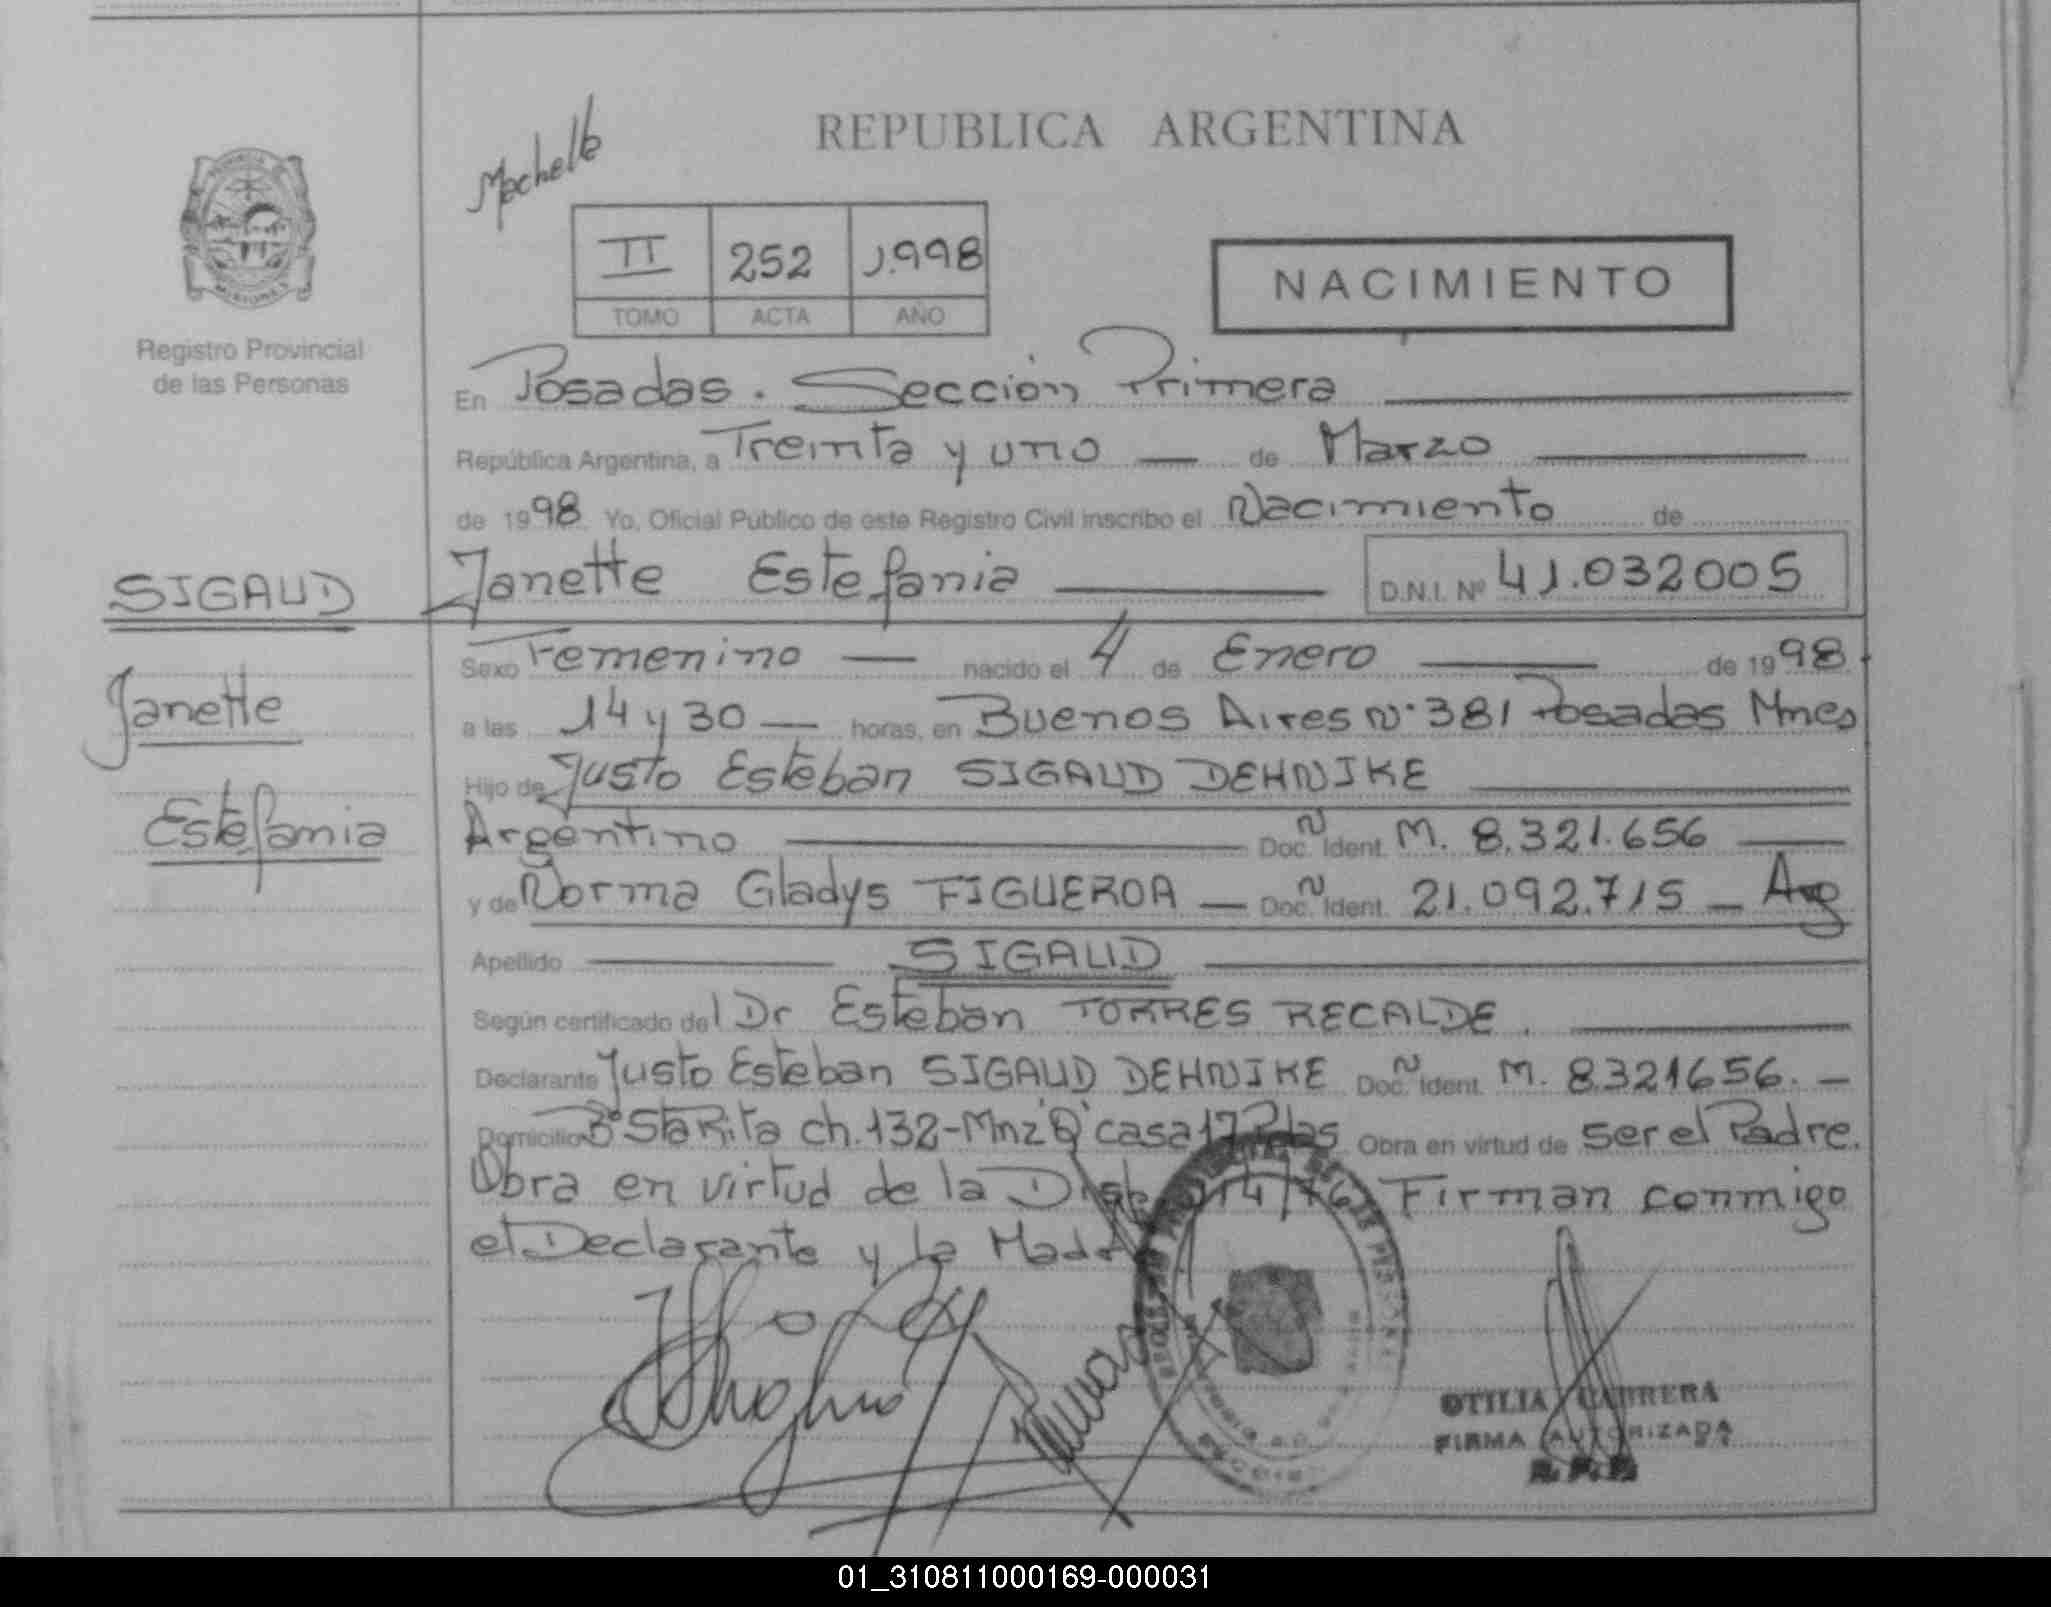 REPUBLICA ARGENTINA
II 252 1.998
TOMO ACTA AÑO
NACIMIENTO
Registro Provincial
de las Personas
En Posadas. Sección Primera
República Argentina, a Treinta y uno — de Marzo
de 1998 Yo, Oficial Público de este Registro Civil inscribo el Nacimiento de
SIGAUD
Janette Estefania D.N.I. Nº 41.032005
Janette
Estefania
Sexo Femenino — nacido el 4 de Enero de 1998
a las 14 y 30 — horas, en Buenos Aires Nº 381 Posadas Mnes
Hijo de Justo Esteban SIGAUD DEHNIKE
Argentino Doc. Ñ Ident. M. 8.321.656
y de Norma Gladys FIGUEROA — Doc. Ñ Ident. 21.092.715 — Arg
Apellido SIGAUD
Según certificado del Dr Esteban TORRES RECALDE.
Declarante Justo Esteban SIGAUD DEHNIKE Doc. Ñ Ident. M. 8321656. —
Domicilio Bº Sta Rita ch. 132-Mnz 'Q' casa 17 Pdas Obra en virtud de ser el Padre.
Obra en virtud de la Firman conmigo
el Declarante y la Madre
OTILIA CABRERA
FIRMA AUTORIZADA
R.P.P.
01_310811000169-000031